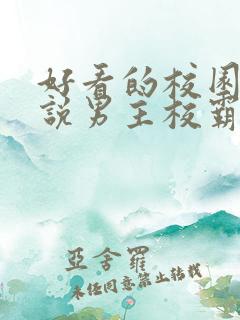 好看的校园
說男主校霸
亞舍羅
未经同意禁止转载